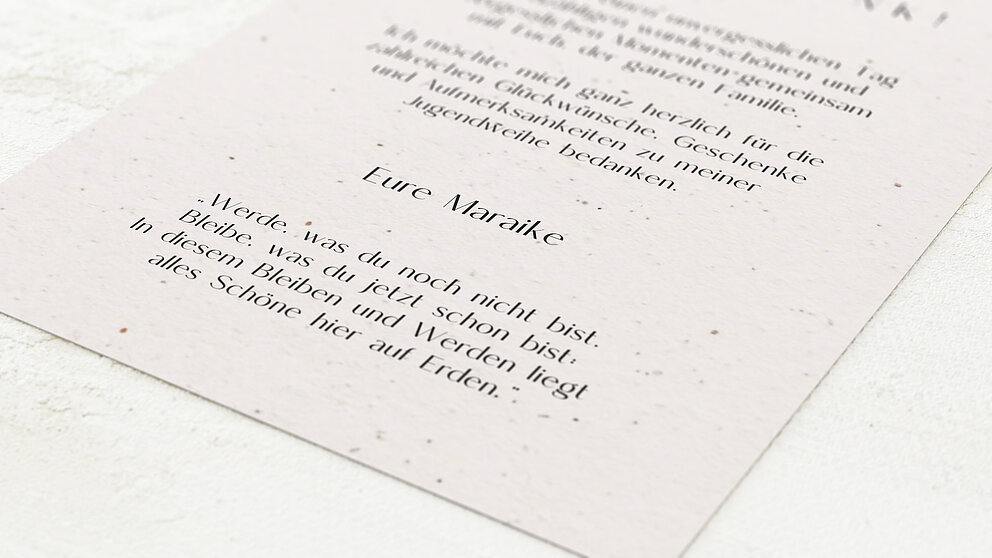 NK!
unvergesslichen Tag
wunderschönen und
unvergesslichen Momenten gemeinsam
mit Euch, der ganzen Familie.
Ich möchte mich ganz herzlich für die
zahlreichen Glückwünsche, Geschenke
und Aufmerksamkeiten zu meiner
Jugendweihe bedanken.
Eure Maraike
„Werde, was du noch nicht bist.
Bleibe, was du jetzt schon bist;
In diesem Bleiben und Werden liegt
alles Schöne hier auf Erden.“